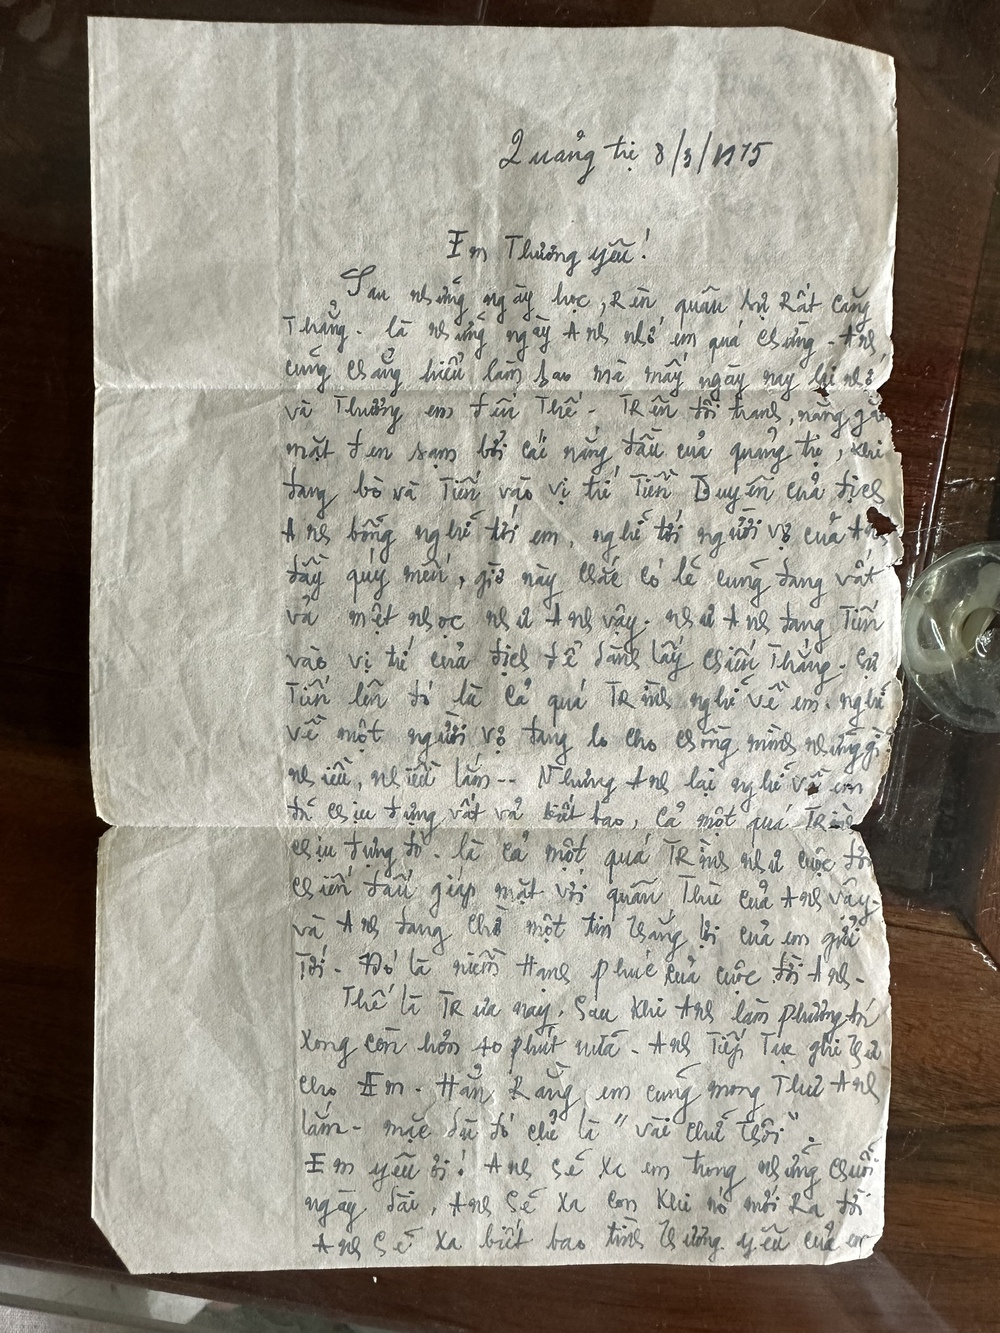 Quảng trị 8/3/1975
Em Thương yêu!
Sau những ngày học, Rèn quân sự Rất căng
Thẳng. là những ngày Anh nhớ em quá chừng. Anh
cũng chẳng hiểu làm sao mà mấy ngày nay lại nhớ
và Thương em đến Thế. TRên đồi tranh, nắng
mặt đen sạm bởi cái nắng đầu của quảng trị, khi
đang bò và Tiến vào vị trí Tiền Duyên của địch
Anh bỗng nghĩ tới em, nghĩ tới người vợ của Anh
đầy quý mến, giờ này chắc có lẽ cũng đang vất
vả mệt nhọc như Anh vậy. như Anh đang Tiến
vào vị trí của địch để dành lấy chiến Thắng. Sự
Tiến lên đó là cả quá TRình nghĩ về em. nghĩ
về một người vợ đang lo cho chồng mình những gì
nhiều, nhiều lắm -- Nhưng Anh lại nghĩ về em
đã chịu đựng vất vả biết bao, cả một quá TRình
chịu đựng đó. là cả một quá TRình như cuộc đời
chiến đấu giáp mặt với quân Thù của Anh vậy.
và Anh đang chờ một tin thắng lợi của em gửi
Tới. Đó là niềm Hạnh phúc của cuộc đời Anh.
Thế là TRưa nay. Sau khi Anh làm phương án
xong còn hơn 40 phút nữa. Anh Tiếp Tục ghi thư
cho Em. Hẳn Rằng em cũng mong Thư Anh
lắm. mặc dù đó chỉ là "vài chữ thôi".
Em yêu ơi! Anh sẽ xa em trong những chuỗi
ngày dài, Anh sẽ xa con khi nó mới Ra đời
Anh sẽ xa biết bao tình thương yêu của em